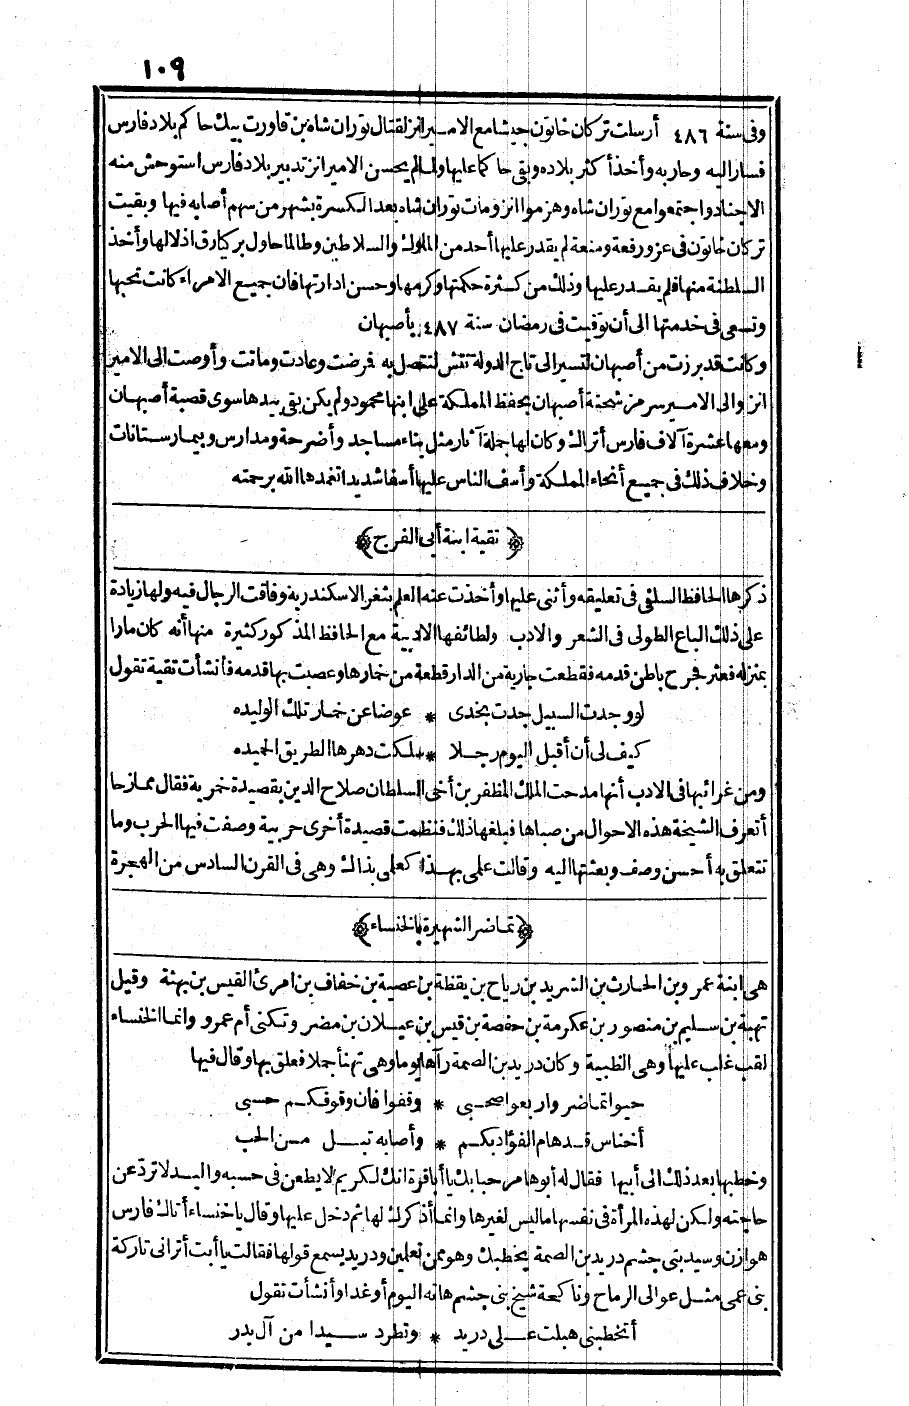 ١٠٩
وفى سنة ٤٨٦ أرسلت تركان خاتون جيشا مع الامير انز لقتال توران شاه بن قاورت بيك حاكم بلاد فارس
فسار اليه وحاربه وأخذ أكثر بلاده وبقى حاكما عليها ولما لم يحسن الامير انز تدبير بلاد فارس استوحش منه
الاجناد واجتمعوا مع توران شاه وهزموا انز ومات توران شاه بعد الكسرة بشهر من سهم أصابه فيها وبقيت
تركان خاتون فى عز ورفعة ومنعة لم يقدر عليها أحد من الملوك والسلاطين وطالما حاول بركيارق اذلالها وأخذ
السلطنة منها فلم يقدر عليها وذلك من كثرة حكمتها وكرمها وحسن ادارتها فان جميع الامراء كانت تحبها
وتسعى فى خدمتها الى أن توفيت فى رمضان سنة ٤٨٧ بأصبهان
وكانت قد برزت من أصبهان لتسير الى تاج الدولة تتش لتتصل به فمرضت وعادت وماتت وأوصت الى الامير
انز والى الامير سرمز شحنة أصبهان بحفظ المملكة على ابنها محمود ولم يكن بقى بيدها سوى قصبة أصبهان
ومعها عشرة آلاف فارس أتراك وكان لها جملة آثار مثل بناء مساجد وأضرحة ومدارس وبيمارستانات
وخلاف ذلك فى جميع أنحاء المملكة وأسف الناس عليها أسفا شديدا تغمدها الله برحمته
﴿ تقية ابنة أبى الفرج ﴾
ذكرها الحافظ السلفى فى تعليقه وأثنى عليها وأخذت عنه العلم بثغر الاسكندرية وفاقت الرجال فيه ولها زيادة
على ذلك الباع الطولى فى الشعر والادب ولطائفها الادبية مع الحافظ المذكور كثيرة منها أنه كان مارا
بمنزله فعثر فجرح باطن قدمه فقطعت جارية من الدار قطعة من خمارها وعصبت بها قدمه فأنشأت تقية تقول
لو وجدت السبيل جدت بخدى * عوضا عن خمار تلك الوليده
كيف لى أن أقبل اليوم رجلا * سلكت دهرها الطريق الحميده
ومن غرائبها فى الادب أنها مدحت الملك المظفر بن أخى السلطان صلاح الدين بقصيدة خمرية فقال ممازحا
أتعرف الشيخة هذه الاحوال من صباها فبلغها ذلك فنظمت قصيدة أخرى حربية وصفت فيها الحرب وما
تتعلق به أحسن وصف وبعثتها اليه وقالت علمى بهذا كعلمى بذاك وهى فى القرن السادس من الهجرة
﴿ تماضر الشهيرة بالخنساء ﴾
هى ابنة عمرو بن الحارث بن الشريد بن رياح بن يقظة بن عصية بن خفاف بن امرئ القيس بن بهثة وقيل
تهبة بن سليم بن منصور بن عكرمة بن حفصة بن قيس بن عيلان بن مضر وتكنى أم عمرو وانما الخنساء
لقب غلب عليها وهى الظبية وكان دريد بن الصمة رآها يوما وهى تهنأ جملا فعلق بها وقال فيها
حيوا تماضر واربعوا صحبى * وقفوا فان وقوفكم حسبى
أخناس قد هام الفؤاد بكم * وأصابه تبل من الحب
وخطبها بعد ذلك الى أبيها فقال له أبوها مرحبا بك يا أبا قرة انك لكريم لا يطعن فى حسبه والسيد لا ترد عن
حاجته ولكن لهذه المرأة فى نفسها ما ليس لغيرها وانما أذكرك لها ثم دخل عليها وقال يا خنساء أتاك فارس
هوازن وسيد بنى جشم دريد بن الصمة يخطبك وهو ممن تعلمين ودريد يسمع قولها فقالت يا أبت أترانى تاركة
بنى عمى مثل عوالى الرماح وناكحة شيخ بنى جشم هامه اليوم أو غدا وأنشأت تقول
أتخطبنى هبلت على دريد * وتطرد سيدا من آل بدر